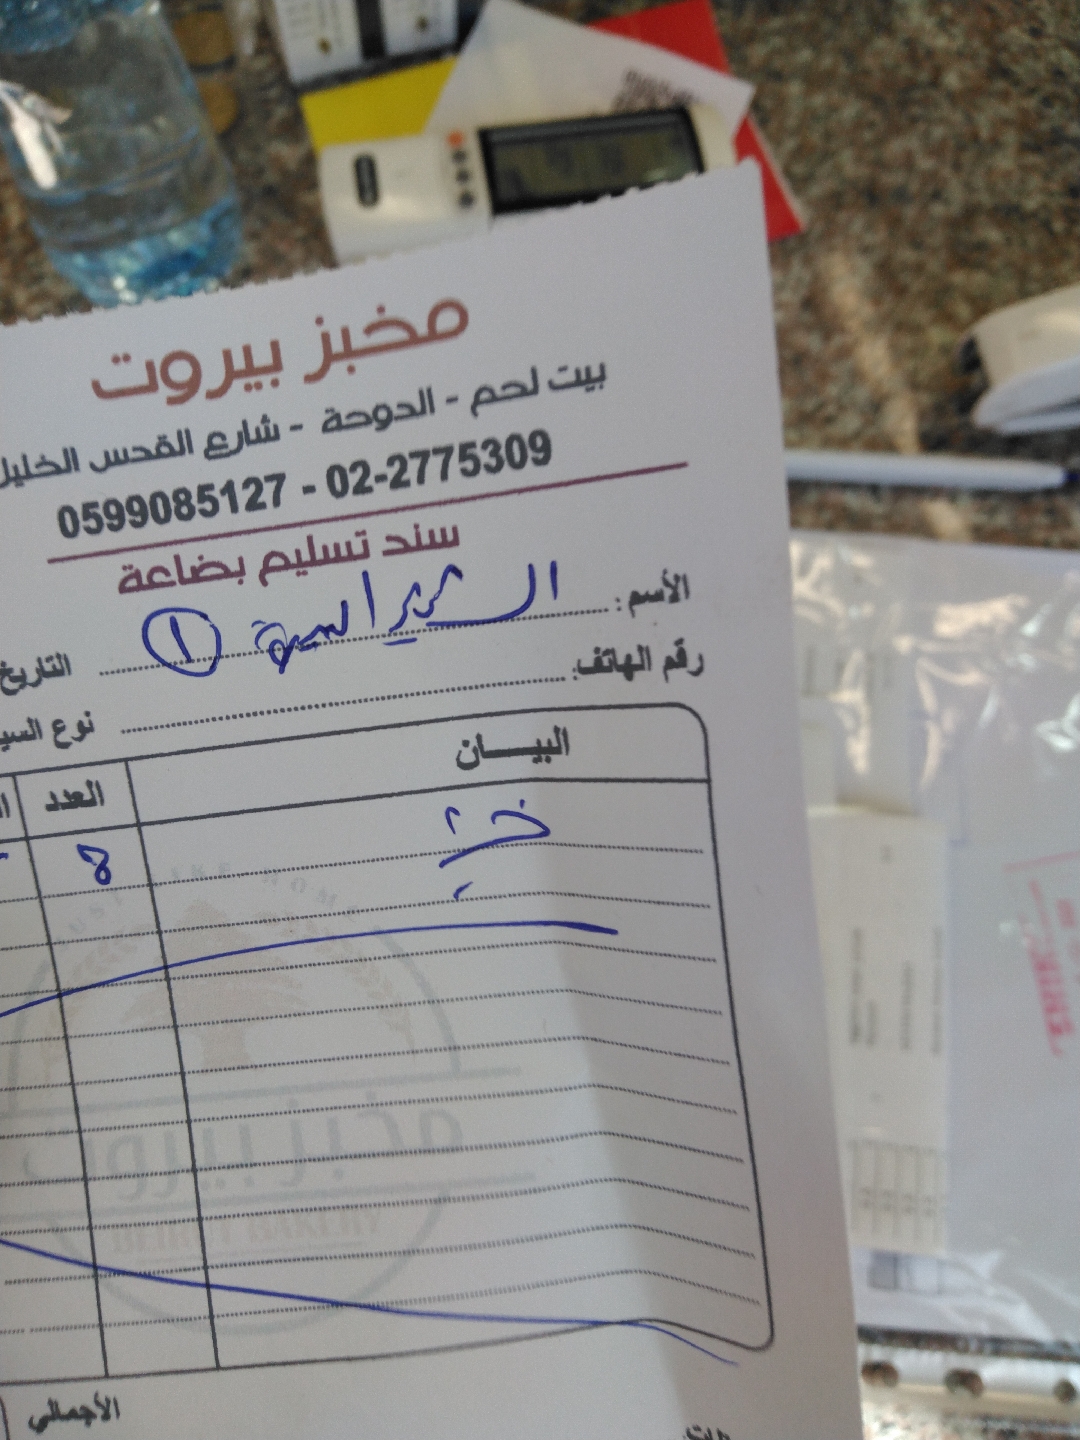 مخبز بيروت
بيت لحم - الدوحة - شارع القدس الخليل
0599085127 - 02-2775309
سند تسليم بضاعة
الأسم :
التاريخ
رقم الهاتف:
نوع السي
البيـــان
العدد
خبز
8
مخبز بيروت
BEIRUT BAKERY
الأجمالي